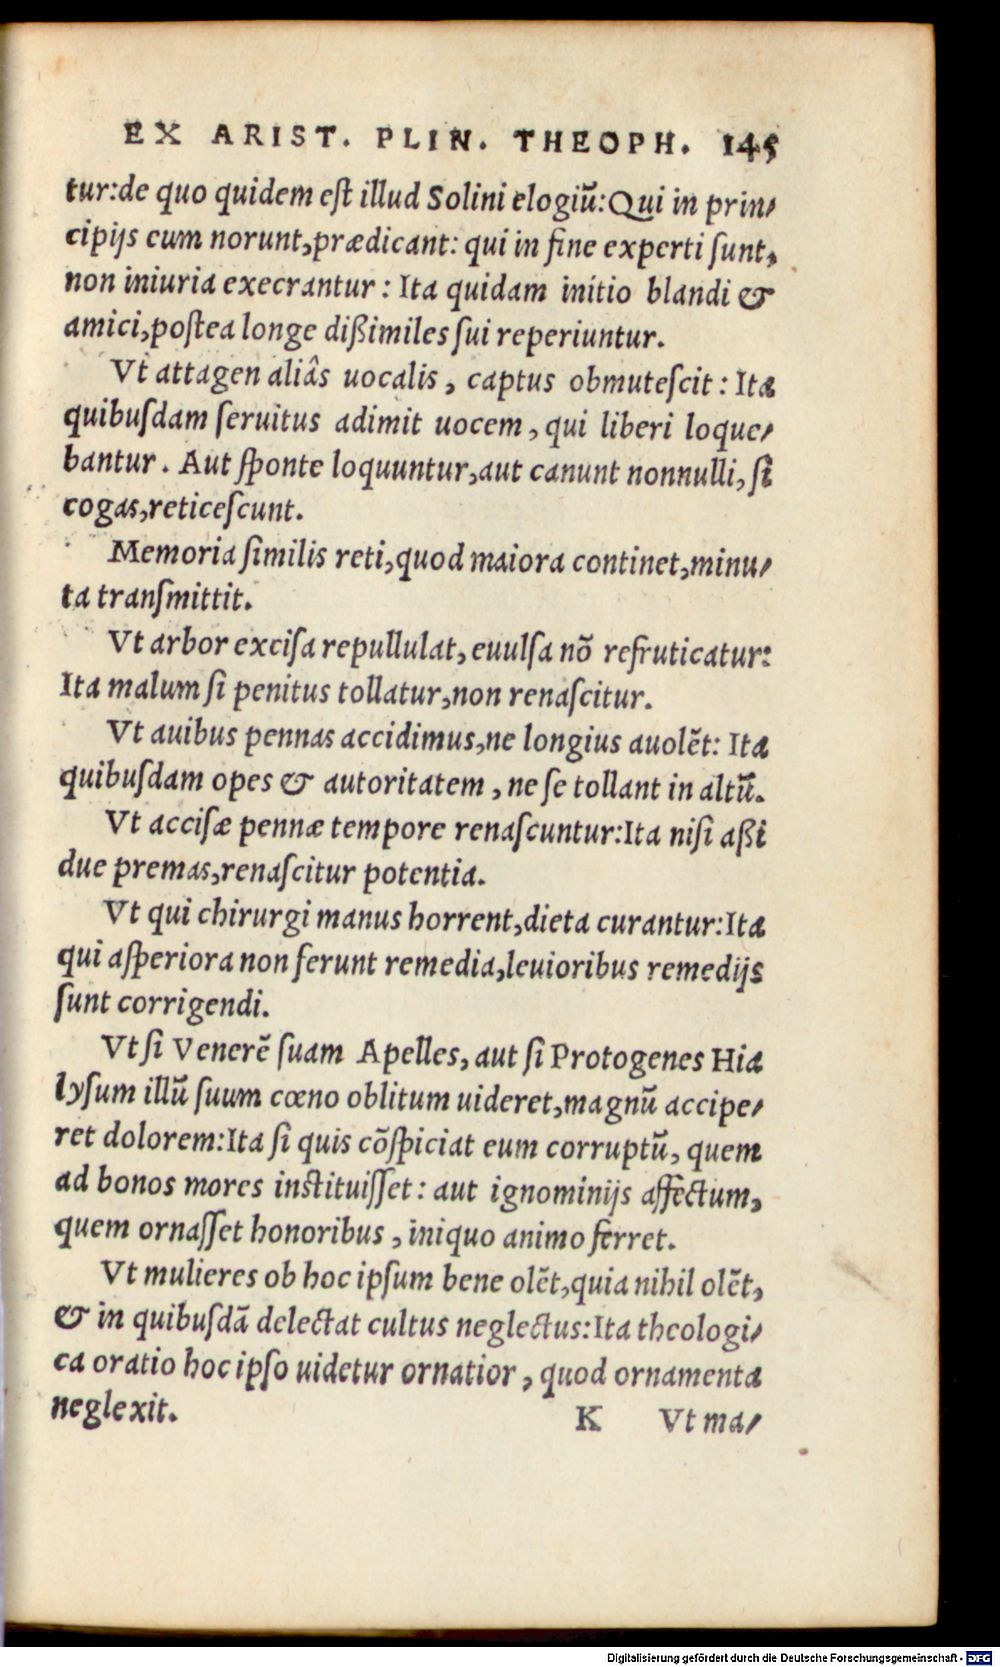 EX ARIST. PLIN. THEOPH. 145
tur:de quo quidem eſt illud Solini elogiũ:Qui in prin⸗
cipijs eum norunt,prædicant: qui in fine experti ſunt,
non iniuria execrantur : Ita quidam initio blandi &
amici,poſtea longe dißimiles ſui reperiuntur.
Vt attagen aliâs uocalis, captus obmuteſcit : Ita
quibuſdam ſeruitus adimit uocem, qui liberi loque⸗
bantur. Aut ſponte loquuntur,aut canunt nonnulli, ſi
cogas,reticeſcunt.
Memoria ſimilis reti,quod maiora continet,minu⸗
ta tranſmittit.
Vt arbor exciſa repullulat, euulſa nõ refruticatur:
Ita malum ſi penitus tollatur,non renaſcitur.
Vt auibus pennas accidimus,ne longius auolẽt: Ita
quibuſdam opes & autoritatem, ne ſe tollant in altũ.
Vt acciſæ pennæ tempore renaſcuntur:Ita niſi aßi
due premas,renaſcitur potentia.
Vt qui chirurgi manus horrent,dieta curantur:Ita
qui aſperiora non ferunt remedia,leuioribus remedijs
ſunt corrigendi.
Vt ſi Venerẽ ſuam Apelles, aut ſi Protogenes Hia
lyſum illũ ſuum cœno oblitum uideret,magnũ accipe⸗
ret dolorem:Ita ſi quis cõſpiciat eum corruptũ, quem
ad bonos mores inſtituiſſet : aut ignominijs affectum,
quem ornaſſet honoribus, iniquo animo ferret.
Vt mulieres ob hoc ipſum bene olẽt,quia nihil olẽt,
& in quibuſdã delectat cultus neglectus:Ita theologi⸗
ca oratio hoc ipſo uidetur ornatior, quod ornamenta
neglexit. K Vt ma⸗
Digitalisierung gefördert durch die Deutsche Forschungsgemeinschaft - DFG